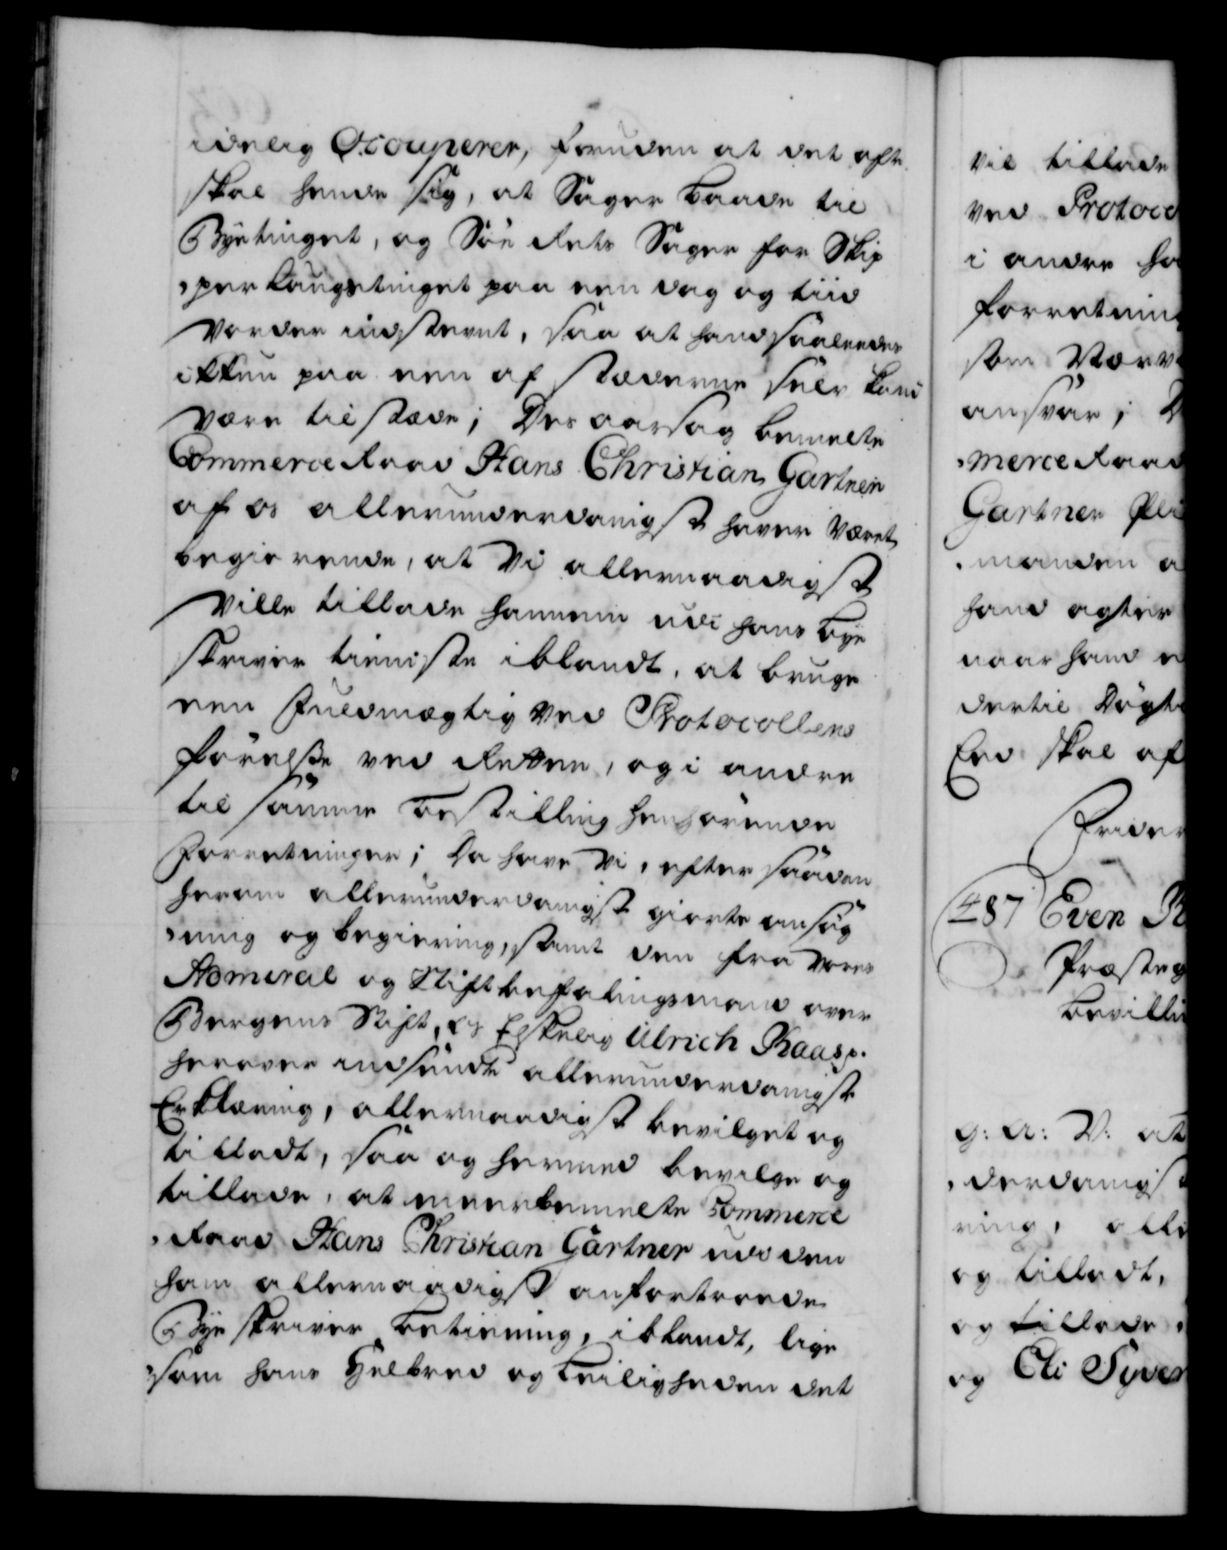 idelig Occuperer, foruden at det ofte
skal hende sig, at Sager baade til
Byetinget, og Söe Rets Sager for Skip
„per Laugstinget paa een dag og tiid
vorder indstevnt, saa at hand saaleedes
ikkun paa een af stæderne selv kand
være tilstæde; Des aarsag bemelte
Commerce Raad Hans Christian Gartner
af os allerunderdanigst haver været
begierende, at Vi allernaadigst
ville tillade hannem udi hans Bye
skriver tieniste iblandt, at bruge
een Fuldmægtig ved Protocollens
förelse ved Retten, og i andre
til samme Bestilling henhörende
Forretninger; Da have Vi, efter saadan
herom allerunderdanigst giorte ansög
„ning og begiering, samt den fra vores
Admiral og Stiftbefalingsmand over
Bergens Stift, Os Elskelig Ulrich Kaas p.
herover indsendte allerunderdanigste
Erklæring, allernaadigst bevilget og
tilladt, saa og hermed bevilge og
tillade, at meerbemelte Commerce
„Raad Hans Christian Gartner udi den
ham allernaadigst anfortroede
Bye skriver Betiening, iblandt, lige
„som hans Helbred og Leiligheden det
vil tillade
ved Protoco
i andre ha
forretning
som Værv
ansvar; D
„merce Raad
Gartner pli
„manden a
hand agter
naar hand e
dertil dygti
End skal af
Frider
487 Even R
Præsteg
bevilli
G: A: V: at
„derdanigst
ring, alle
og tilladt,
og tillade,
og Eli Syver